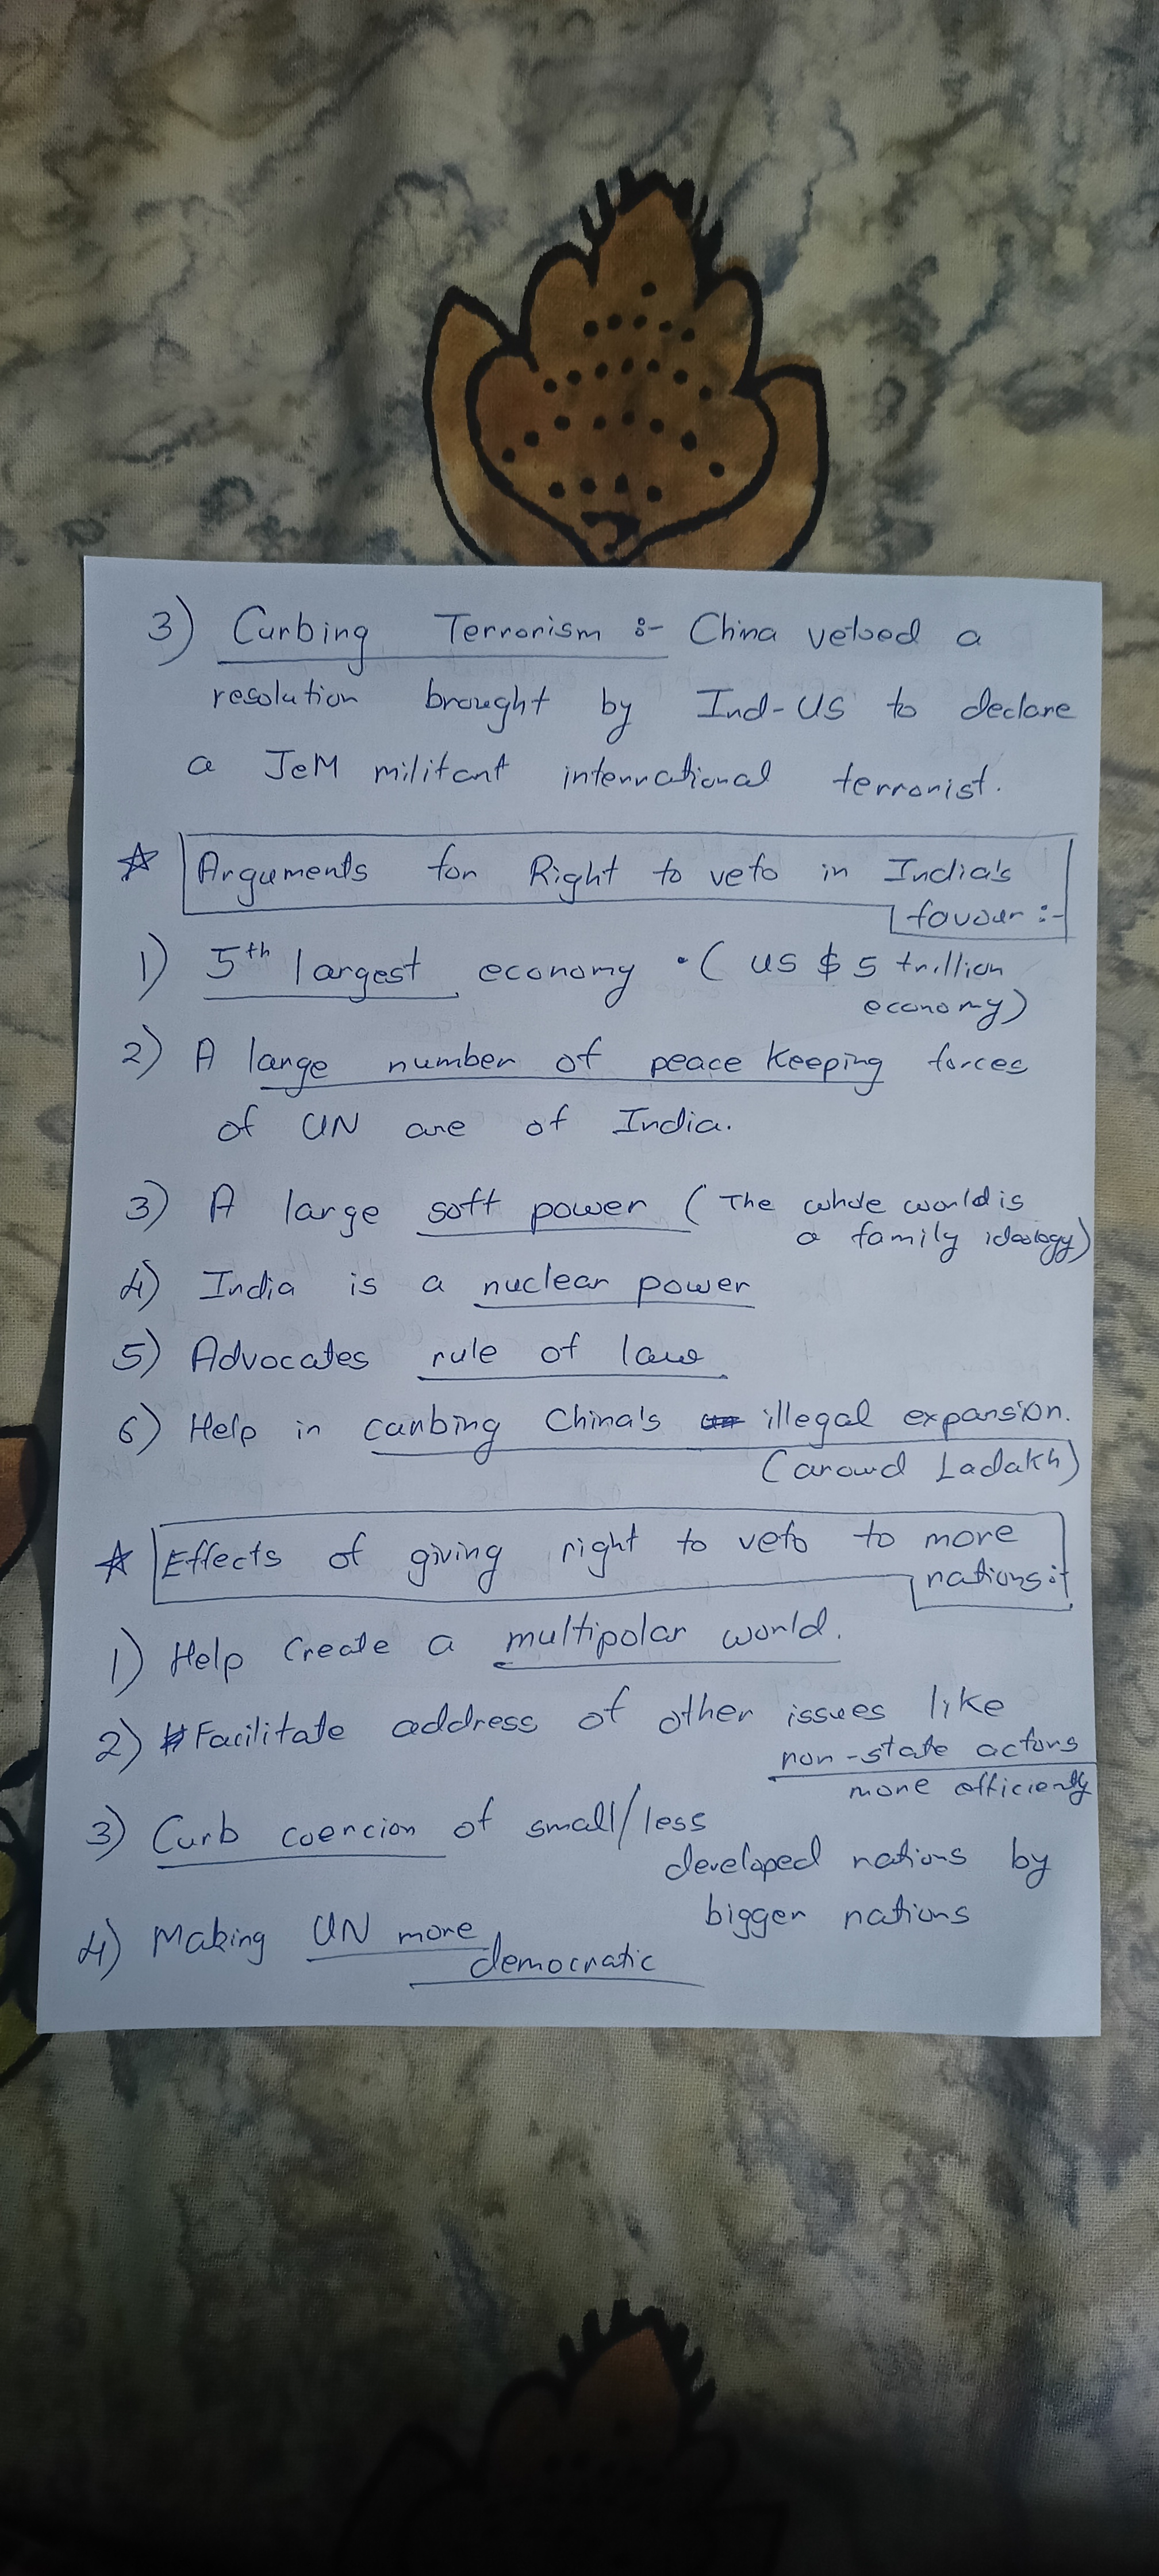 3) Curbing Terrorism :- China vetoed a
resolution brought by Ind-US to declare
a JeM militant international terrorist.
☆ Arguments for Right to veto in India's
favour :-
1) 5th largest economy . ( US $ 5 trillion
economy)
2) A large number of peace keeping forces
of UN are of India.
3) A large soft power ( The whole world is
a family ideology)
4) India is a nuclear power
5) Advocates rule of law
6) Help in curbing China's illegal expansion.
(around Ladakh)
☆ Effects of giving right to veto to more
nations :-
1) Help Create a multipolar world.
2) Facilitate address of other issues like
non-state actors
more efficiently
3) Curb coercion of small/less
developed nations by
bigger nations
4) Making UN more
democratic